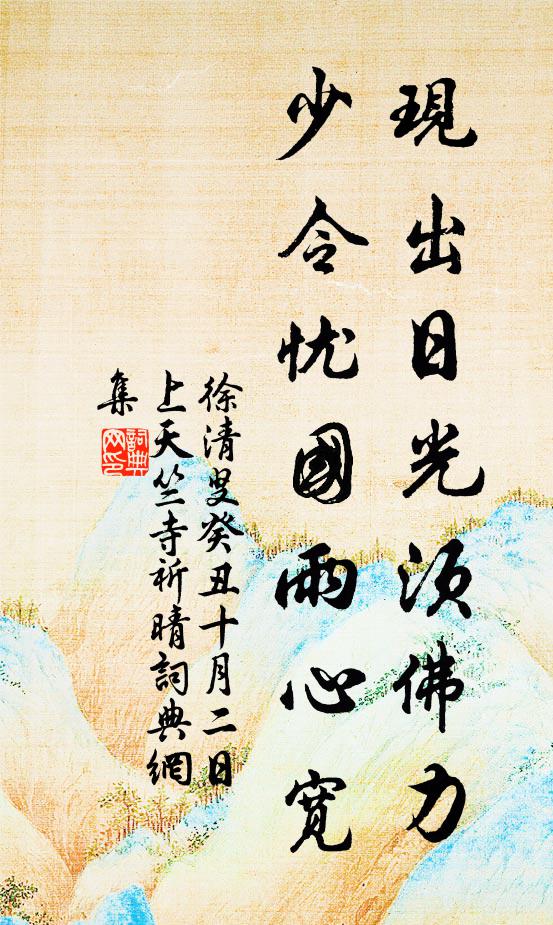 現出日光須佛力
少令忧國兩心寬
徐清叟癸丑十月二日
上天竺寺祈晴詞典網
集
詞典
网印